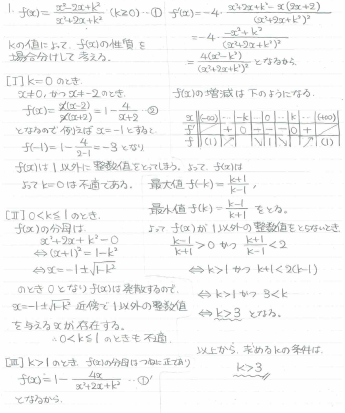 1. f(x)= (x²-2x+k²)/(x²+2x+k²) (k≥0) …①
kの値によって、f(x)の性質を
場合分けして考える。
[I] k=0のとき
x≠0, かつ x≠-2のとき、
f(x)= x(x-2)/x(x+2) = 1- 4/(x+2) …②
となるので 例えば x=-1とすると
f(-1)=1- 4/(2-1) =-3となり
f(x)は1以外に整数値をとってしまう。
よって k=0は不適である。
[II] 0<k≤1のとき、
f(x)の分母は
x²+2x+k²=0
⇔(x+1)²=1-k²
⇔x=-1±√1-k²
のとき 0となり f(x)は発散するので、
x=-1±√1-k² 近傍で 1以外の整数値
を与えるxが存在する。
∴ 0<k≤1のときも不適
[III] k>1のとき、f(x)の分母はつねに正であり
f(x)=1- 4x/(x²+2x+k²) …①'
となるから、
f'(x)=-4・ (x²+2x+k²-x(2x+2))/(x²+2x+k²)²
=-4・ (-x²+k²)/(x²+2x+k²)²
= 4(x²-k²)/(x²+2x+k²)² となるから
f(x)の増減は下のようになる。
x (-∞) … -k … 0 … k … (+∞)
f' + 0 - - - 0 +
f (1) ↗ ↘ 1 ↘ ↗ (1)
よって、f(x)は
最大値 f(-k)= (k+1)/(k-1) ,
最小値 f(k)= (k-1)/(k+1) をとる。
よって f(x)が 1以外の整数値をとらないとき、
(k-1)/(k+1) >0 かつ (k+1)/(k-1) <2
⇔ k>1 かつ k+1<2(k-1)
⇔ k>1 かつ 3<k
⇔ k>3 となる。
以上から、求めるkの条件は、
k>3